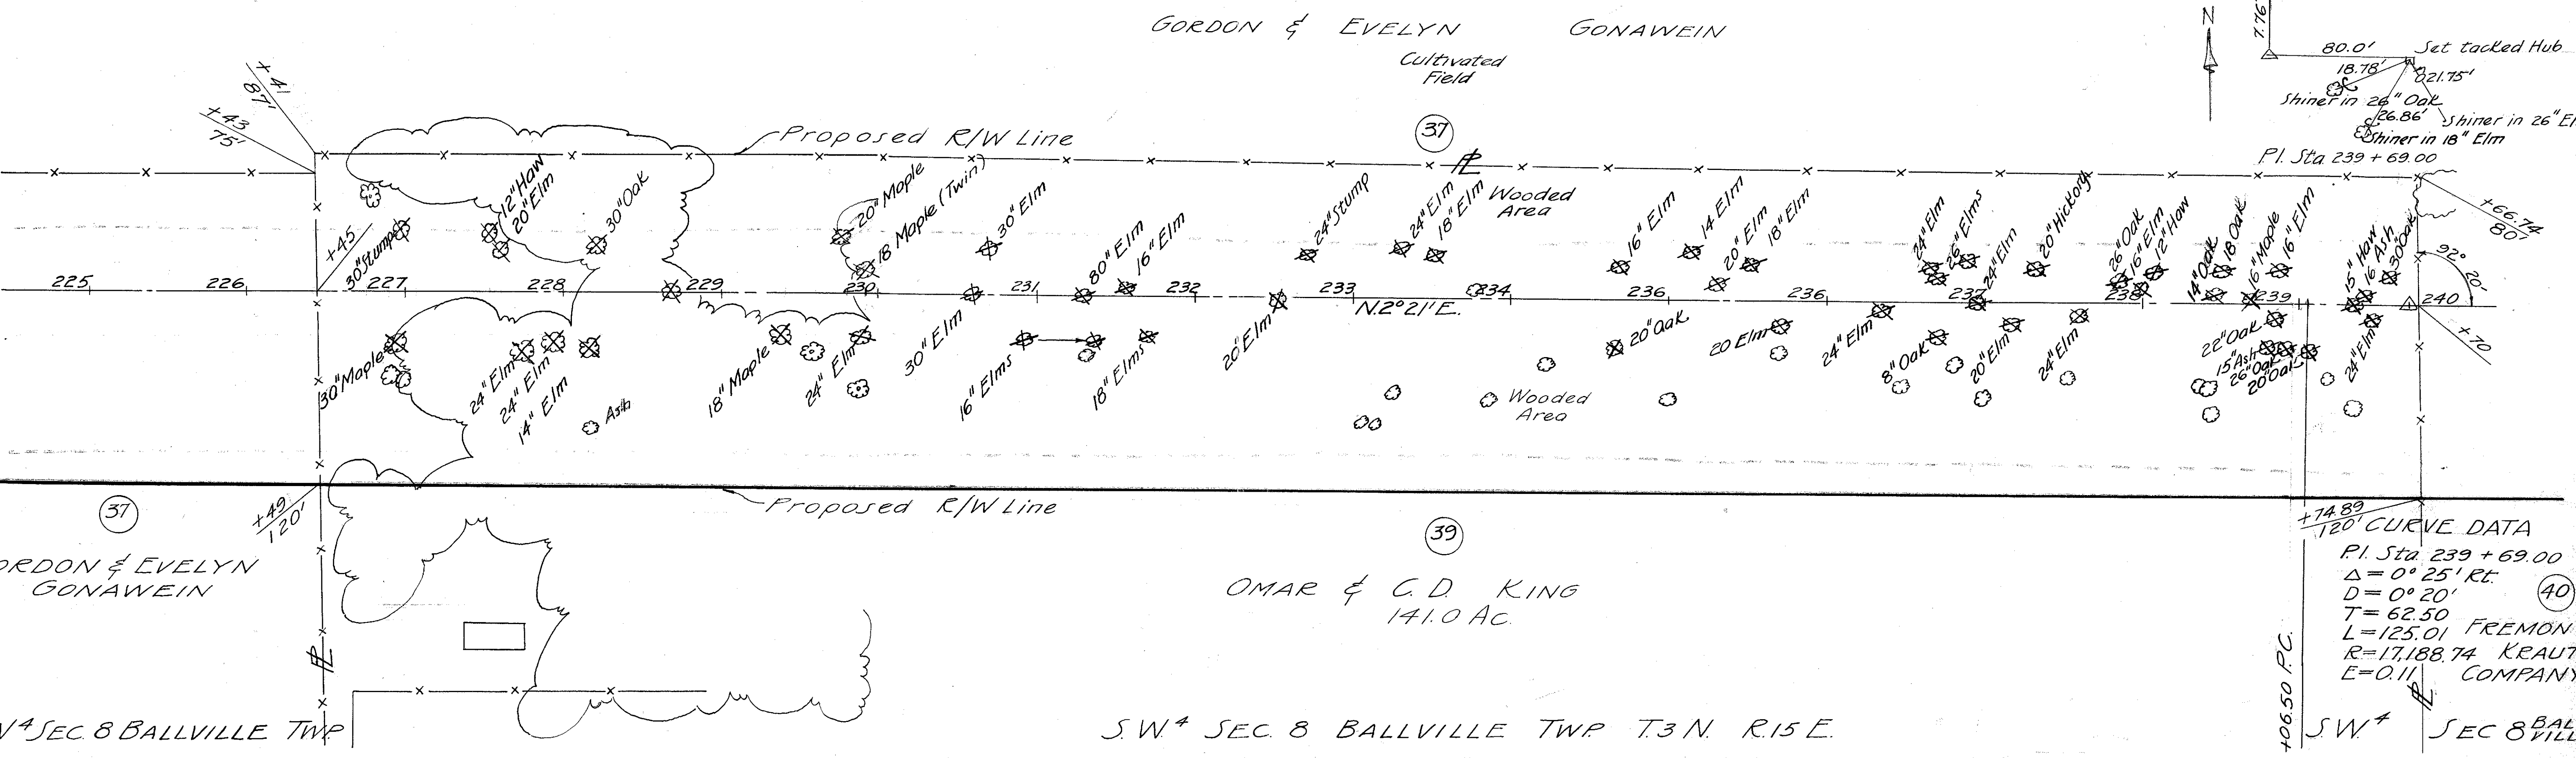 GORDON & EVELYN GONAWEIN
Cultivated
Field
37
N
7.76'
80.0'
Set tacked Hub
18.78'
21.75'
Shiner in 26" Oak
26.86'
Shiner in 26" El
Shiner in 18" Elm
P.I. Sta 239 + 69.00
+41
87'
+43
75'
Proposed R/W Line
PL
+45
30" Stump
12" Haw
20" Elm
30" Oak
20" Maple
18 Maple (Twin)
30" Elm
80" Elm
16" Elm
24" Stump
24" Elm
18" Elm
Wooded
Area
16" Elm
14 Elm
20" Elm
18" Elm
24" Elm
26" Elms
24" Elm
20" Hickory
26" Oak
16" Elm
12" Haw
14" Oak
18 Oak
16" Maple
16" Elm
15" Haw
16 Ash
30 Oak
+66.74
80'
92° 20'
225 226 227 228 229 230 231 232 233 234 236 236 237 238 239 240
N.2°21'E.
+70
30" Maple
24" Elm
24" Elm
14" Elm
Ash
18" Maple
24" Elm
30" Elm
16" Elms
18" Elms
20" Elm
20" Oak
20 Elm
24" Elm
8" Oak
20" Elm
24" Elm
22" Oak
15" Ash
26" Oak
20" Oak
24" Elm
Wooded
Area
+49
120'
Proposed R/W Line
37
ORDON & EVELYN
GONAWEIN
39
OMAR & C.D. KING
141.0 AC.
+74.89
120'
CURVE DATA
P.I. Sta 239 + 69.00
Δ = 0° 25' Rt.
D = 0° 20'
T = 62.50
L = 125.01
R = 17,188.74
E = 0.11
40
FREMON
KRAUT
COMPANY
PL
PL
+06.50 P.C.
W⁴ SEC. 8 BALLVILLE TWP.
S.W.⁴ SEC. 8 BALLVILLE TWP. T.3 N. R.15 E.
S.W.⁴
SEC 8 BAL
VILL